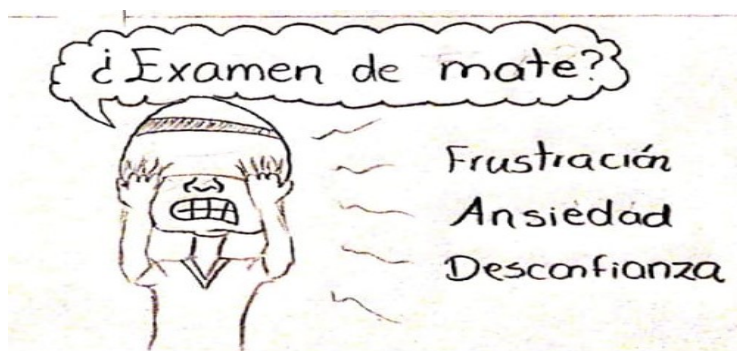 ¿Examen de mate?
Frustración
Ansiedad
Desconfianza